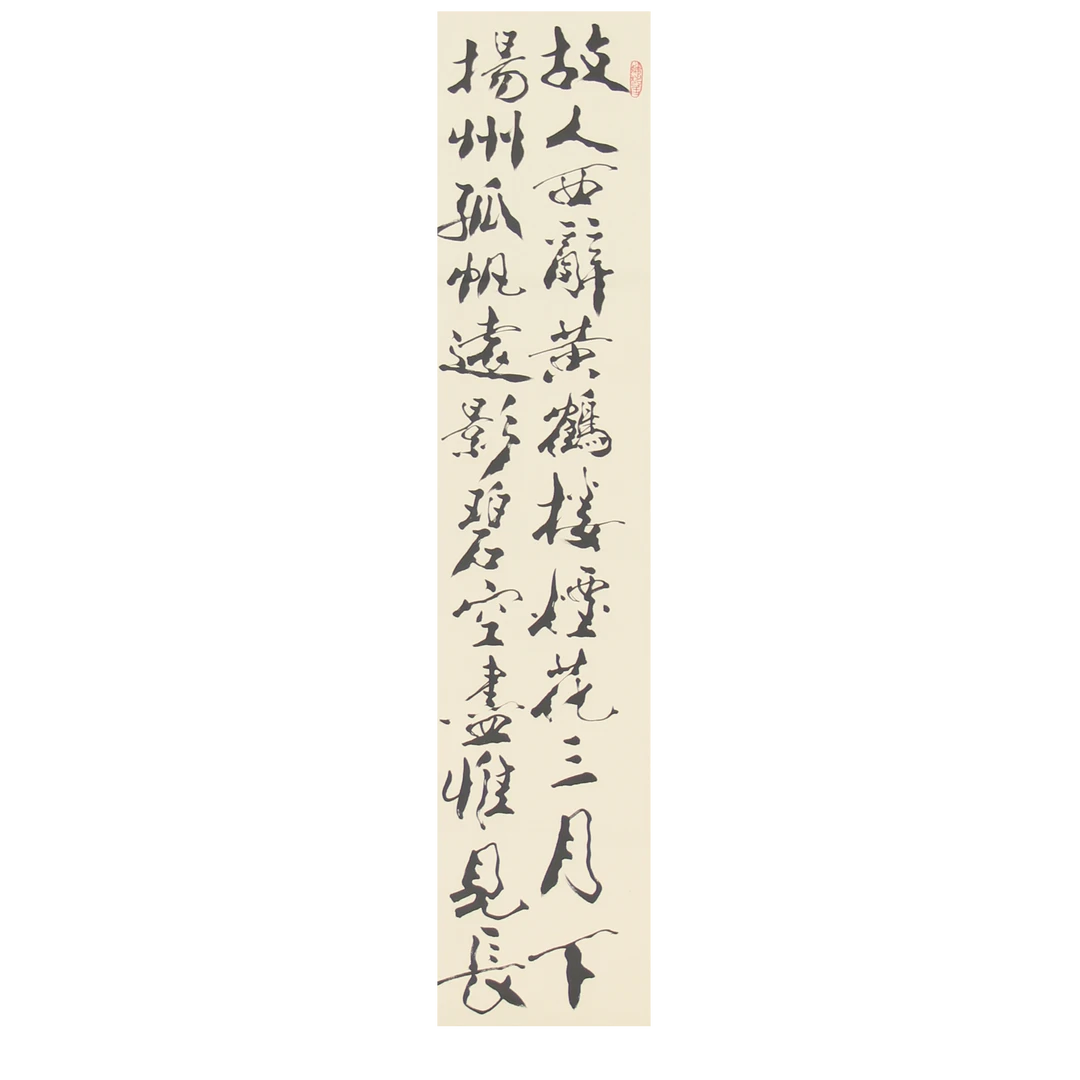 故人西辭黃鶴楼煙花三月下
揚州孤帆遠影碧空盡惟見長